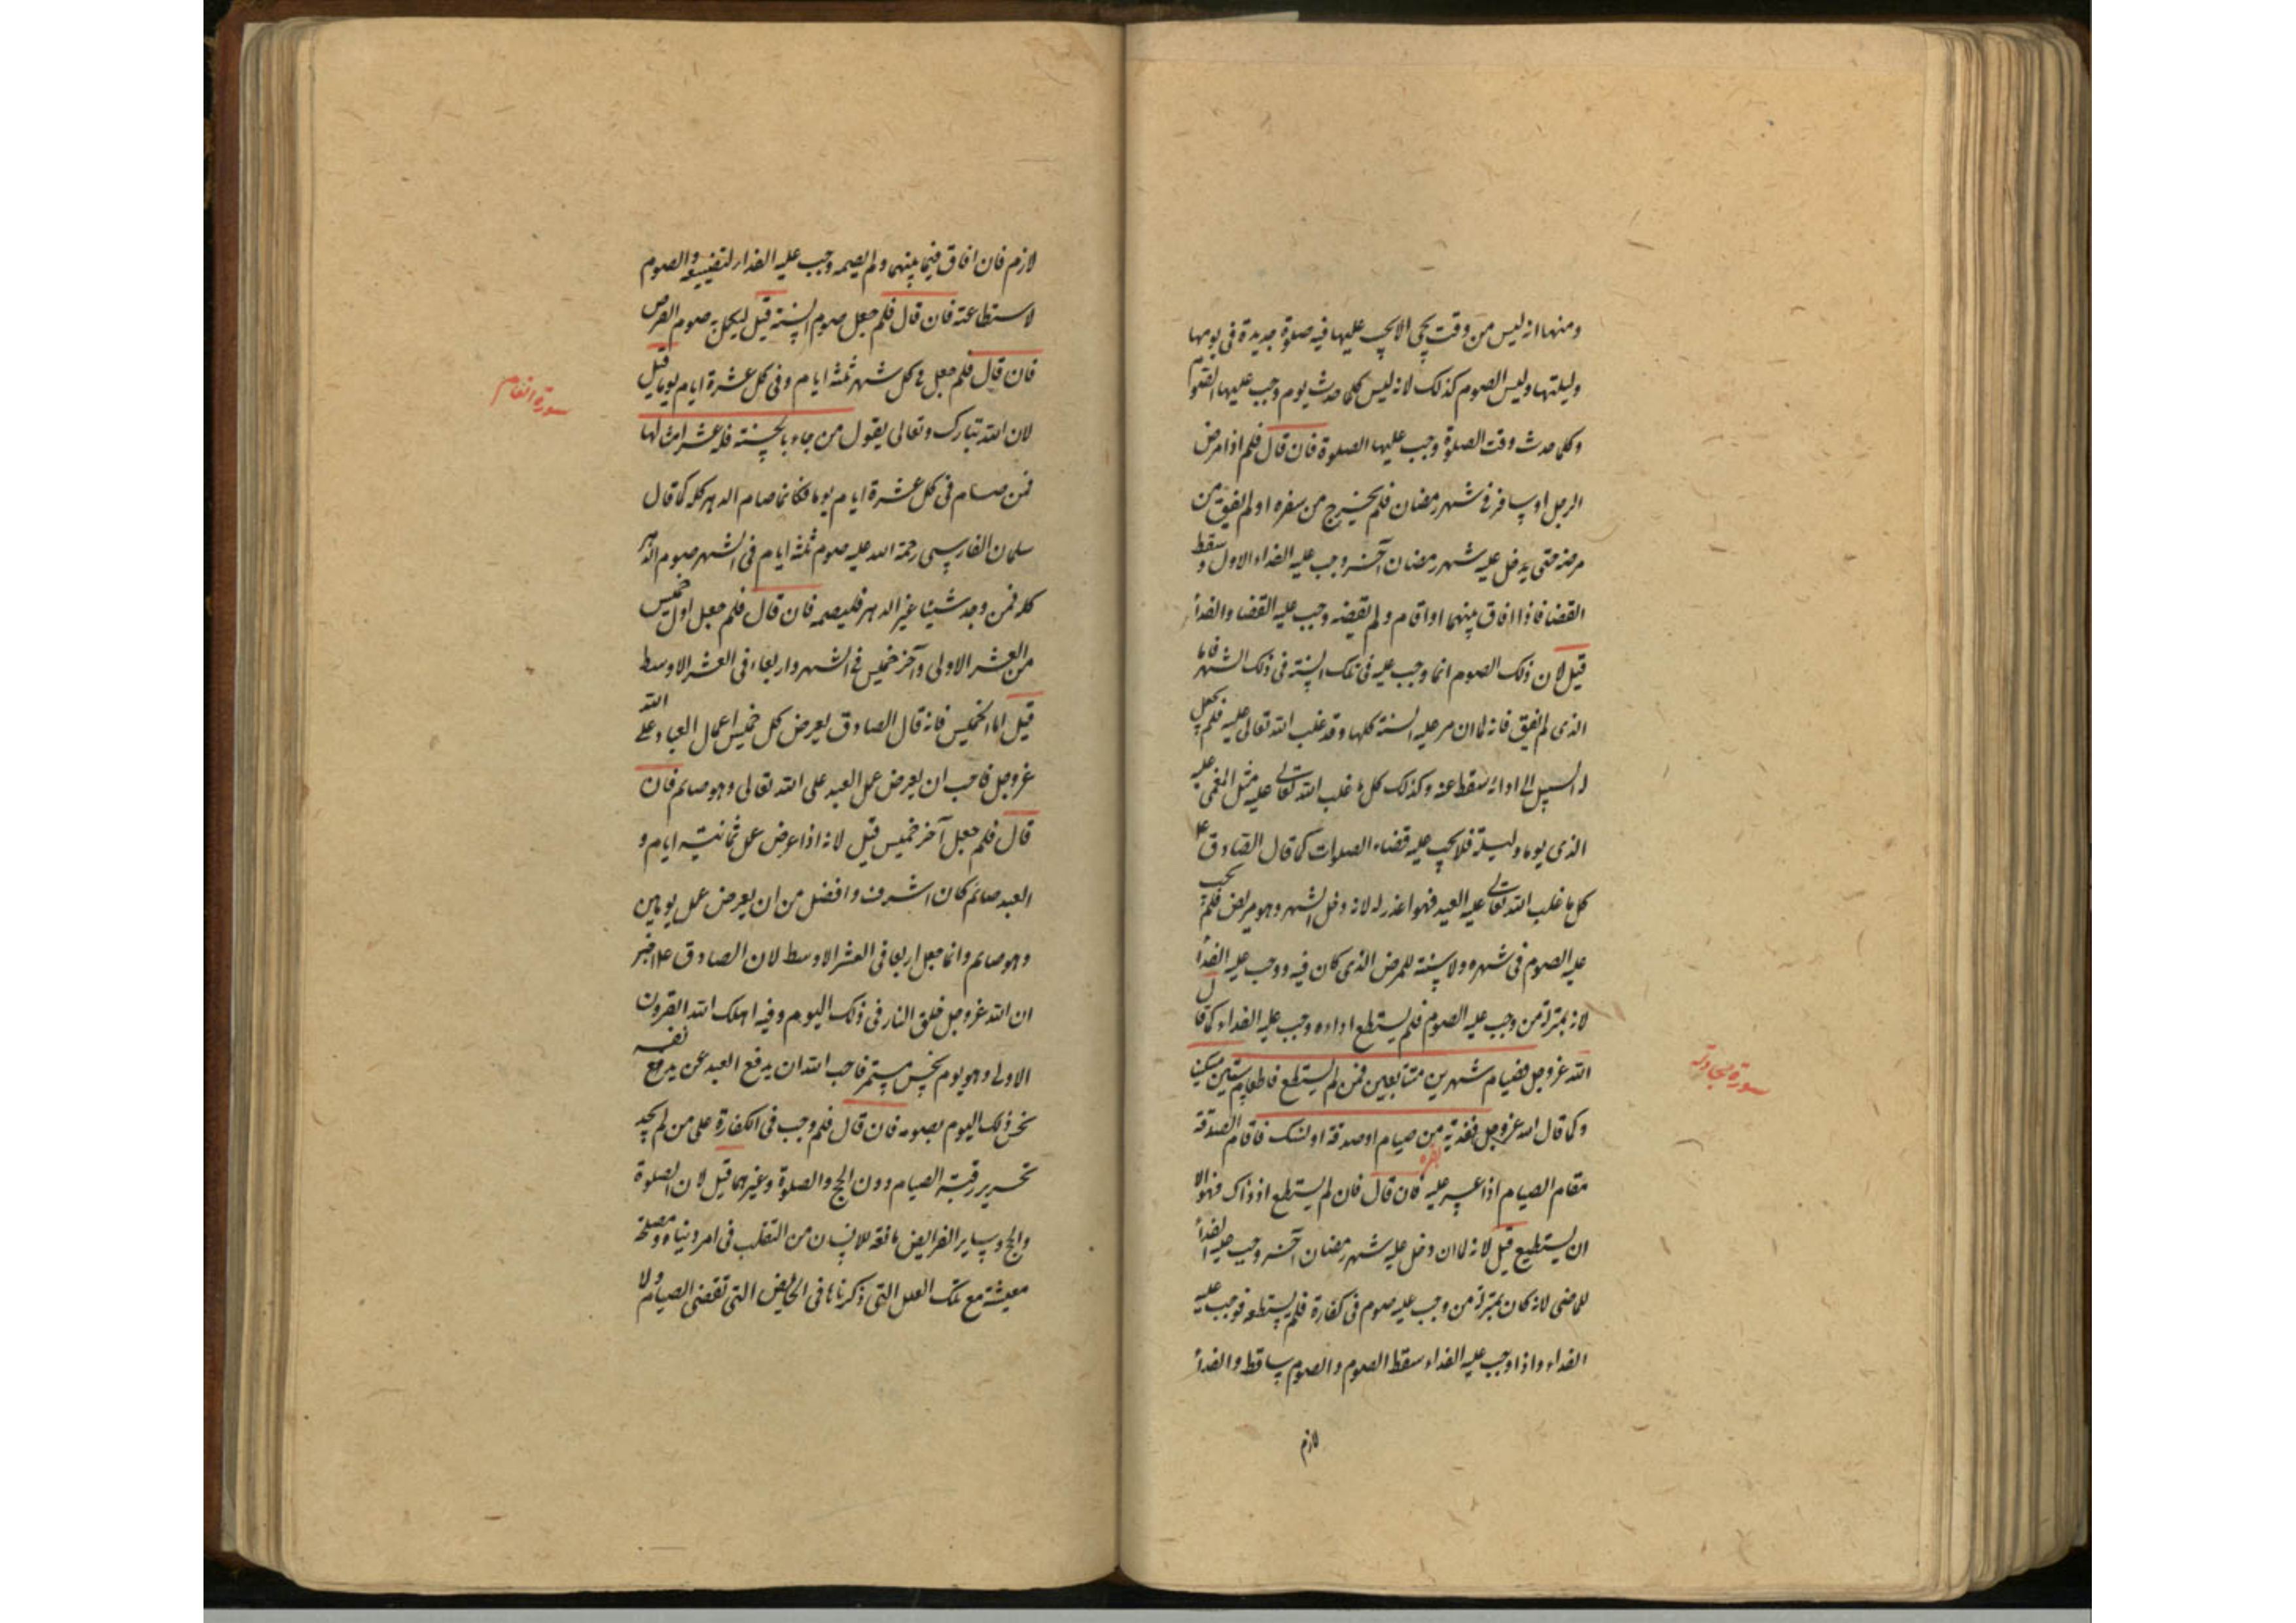 ومنها انه ليس من وقت يجئ الا يجب عليها فيه صلوة جديدة فى يومها
وليلتها وليس الصوم كذلك لانه ليس كلما حدث يوم وجب عليها الصوم
وكلما حدث وقت الصلوة وجب عليها الصلوة فان قال فلم اذا مرض
الرجل او سافر فى شهر رمضان فلم يخرج من سفره او لم يفق من
مرضه حتى يدخل عليه شهر رمضان آخر وجب عليه الفداء الاول وسقط
القضا فاذا افاق بينهما او اقام ولم يقضه وجب عليه القضا والفدأ
قيل لان ذلك الصوم انما وجب عليه فى تلك السنة فى ذلك الشهر فاما
الذى لم يفق فانه لما ان مر عليه السنة كلها وقد غلب الله تعالى عليه فلم يجعل
له السبيل الى ادائه سقط عنه وكذلك كل ما غلب الله تعالى عليه مثل المغمى عليه
الذى يوما وليلة فلا يجب عليه قضاء الصلوات كما قال الصادق ع
كل ما غلب الله تعالى عليه العبد فهو اعذر له لانه دخل الشهر وهو مريض فلم يجب
عليه الصوم فى شهره ولا سنته للمرض الذى كان فيه ووجب عليه الفدأ
لانه بمنزلة من وجب عليه الصوم فلم يستطع اداءه وجب عليه الفداء كما قال
الله عز وجل فصيام شهرين متتابعين فمن لم يستطع فاطعام ستين مسكينا
سورة مجادلة
وكما قال الله عز وجل ففدية من صيام او صدقة او نسك فاقام الصدقة
بقره
مقام الصيام اذا عسر عليه فان قال فان لم يستطع اذ ذاك فهو الا
ان يستطيع قيل لانه لما ان دخل عليه شهر رمضان آخر وجب عليه الفدأ
للماضى لانه كان بمنزلة من وجب عليه صوم فى كفارة فلم يستطعه فوجب عليه
الفداء واذا وجب عليه الفداء سقط الصوم والصوم ساقط والفدأ
لازم
لازم فان افاق فيما بينهما ولم يصمه وجب عليه الفداء لتضييعه والصوم
لاستطاعته فان قال فلم جعل صوم السنة قيل ليكمل به صوم الفرض
فان قال فلم جعل فى كل شهر ثلثة ايام وفى كل عشرة ايام يوما قيل
سورة انعام
لان الله تبارك وتعالى يقول من جاء بالحسنة فله عشر امثالها
فمن صام فى كل عشرة ايام يوما فكانما صام الدهر كله كما قال
سلمان الفارسى رحمة الله عليه صوم ثلثة ايام فى الشهر صوم الدهر
كله فمن وجد شيئا غير الدهر فليصمه فان قال فلم جعل اول خميس
من العشر الاولى وآخر خميس فى الشهر واربعاء فى العشر الاوسط
قيل اما الخميس فانه قال الصادق يعرض كل خميس اعمال العباد على الله
عز وجل فاحب ان يعرض عمل العبد على الله تعالى وهو صائم فان
قال فلم جعل آخر خميس قيل لانه اذا عرض عمل ثمانية ايام و
العبد صائم كان اشرف وافضل من ان يعرض عمل يومين
وهو صائم وانما جعل اربعا فى العشر الاوسط لان الصادق ع اخبر
ان الله عز وجل خلق النار فى ذلك اليوم وفيه اهلك الله القرون
الاولى وهو يوم نحس مستمر فاحب الله ان يدفع العبد عن نفسه
نحس ذلك اليوم بصومه فان قال فلم وجب فى الكفارة على من لم يجد
تحرير رقبة الصيام دون الحج والصلوة وغيرهما قيل لان الصلوة
والحج وساير الفرايض مانعة للانسان من التقلب فى امر دنياه ومصلحة
معيشته مع تلك العلل التى ذكرناها فى الحايض التى تقضى الصيام ولا